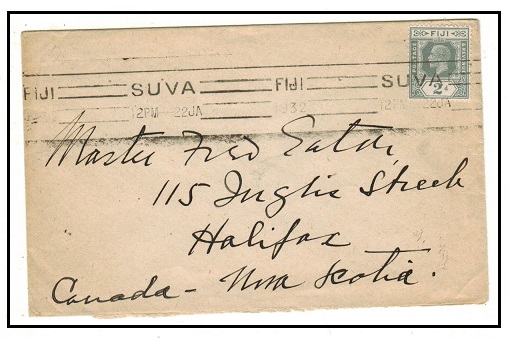 FIJI
POSTAGE
2d
FIJI SUVA FIJI SUVA
12PM 22JA 1932 12PM
Master Fred Eaton
115 Inglis Street
Halifax
Canada - Nova Scotia.